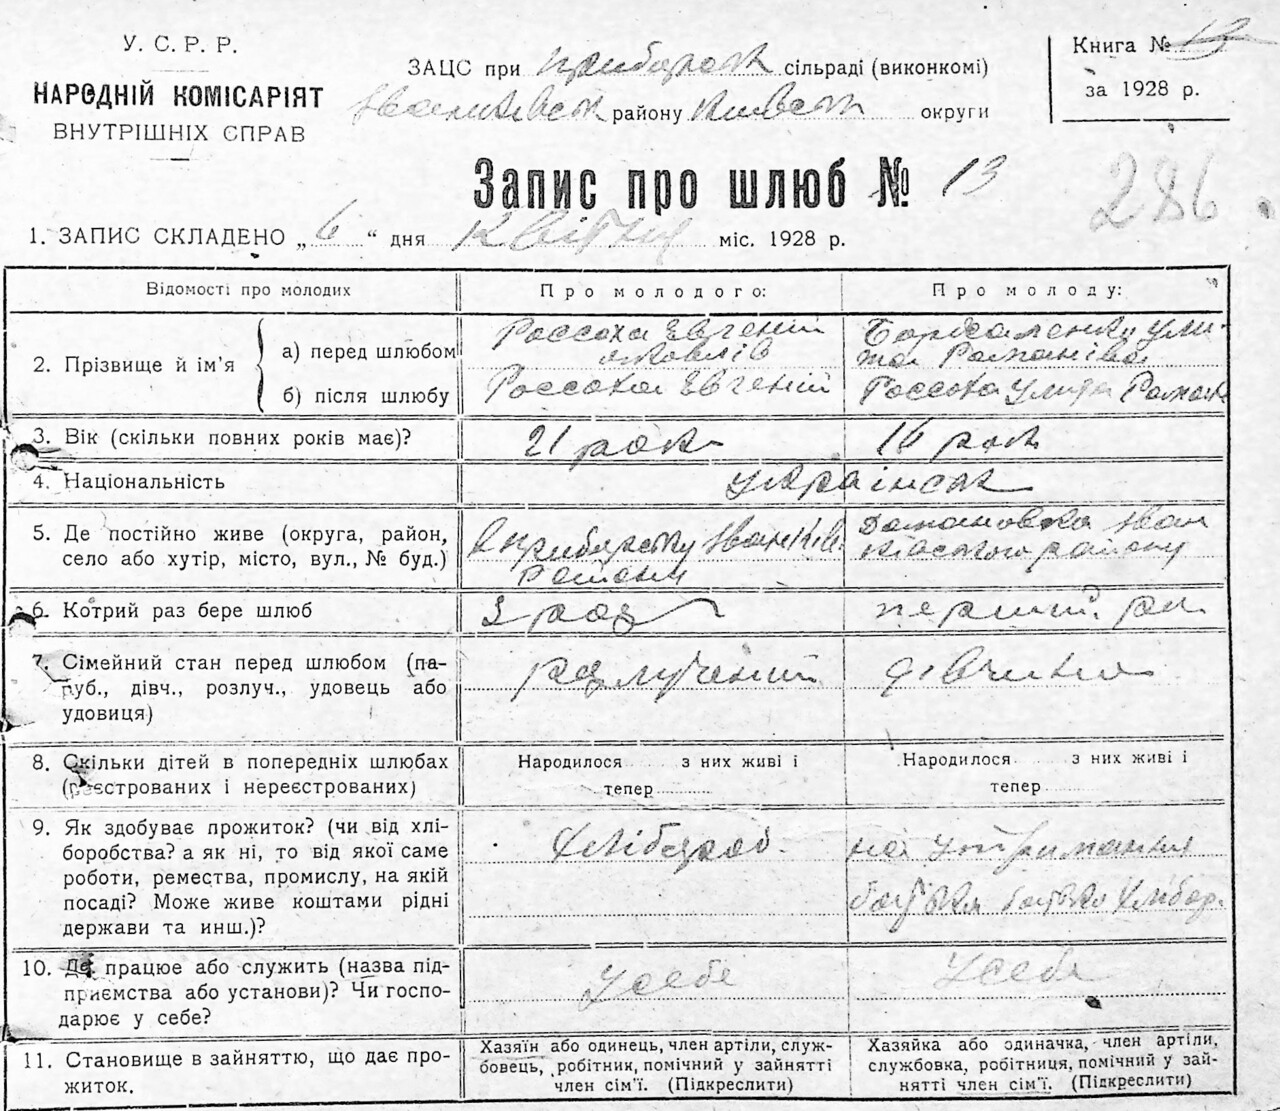 У. С. Р. Р.
НАРОДНІЙ КОМІСАРІЯТ
ВНУТРІШНІХ СПРАВ
ЗАЦС при сільраді (виконкомі)
району округи
Книга №
за 1928 р.
Запис про шлюб № 13
286
1. ЗАПИС СКЛАДЕНО „6“ дня Квітня міс. 1928 р.
Відомості про молодих
Про молодого:
Про молоду:
2. Прізвище й ім'я
а) перед шлюбом
Россоха Євгеній
Яковлів
Романівна
б) після шлюбу
Россоха Євгеній
Россоха Улита Роман
3. Вік (скільки повних років має)?
21 рок
16 рок
4. Національність
Українськ
5. Де постійно живе (округа, район,
село або хутір, місто, вул., № буд.)
району
6. Котрий раз бере шлюб
раз
7. Сімейний стан перед шлюбом (па-
руб., дівч., розлуч., удовець або
удовиця)
разлучений
дівчина
8. Скільки дітей в попередніх шлюбах
(реєстрованих і нереєстрованих)
Народилося з них живі і
тепер
Народилося з них живі і
тепер
9. Як здобуває прожиток? (чи від хлі-
боробства? а як ні, то від якої саме
роботи, ремества, промислу, на якій
посаді? Може живе коштами рідні
держави та инш.)?
Хлібороб.
на утримання
батька батько хлібор.
10. Де працює або служить (назва під-
приємства або установи)? Чи госпо-
дарює у себе?
У себе
У себе
11. Становище в зайняттю, що дає про-
житок.
Хазяїн або одинець, член артіли, служ-
бовець, робітник, помічний у зайнятті
член сім'ї. (Підкреслити)
Хазяйка або одиначка, член артіли,
службовка, робітниця, помічний у зай-
нятті член сім'ї. (Підкреслити)